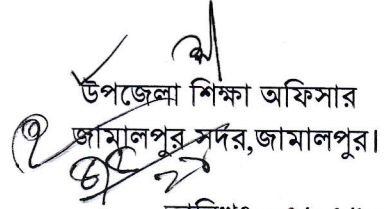 উপজেলা শিক্ষা অফিসার
জামালপুর সদর,জামালপুর।